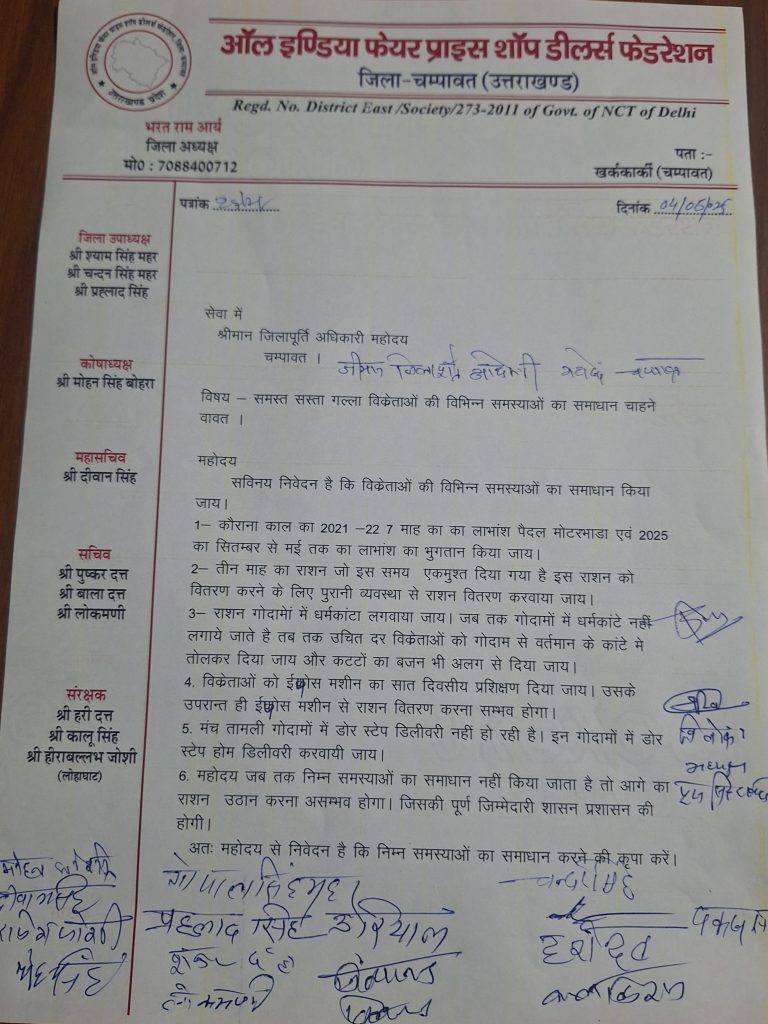 ऑल इण्डिया फेयर प्राइस शॉप डीलर्स फेडरेशन
जिला-चम्पावत (उत्तराखण्ड)
Regd. No. District East /Society/273-2011 of Govt. of NCT of Delhi
भरत राम आर्य
जिला अध्यक्ष
मो0 : 7088400712
पता :-
खर्ककार्की (चम्पावत)
पत्रांक
दिनांक 04/06/
जिला उपाध्यक्ष
श्री श्याम सिंह महर
श्री चन्दन सिंह महर
श्री प्रहलाद सिंह
कोषाध्यक्ष
श्री मोहन सिंह बोहरा
महासचिव
श्री दीवान सिंह
सचिव
श्री पुष्कर दत्त
श्री बाला दत्त
श्री लोकमणी
संरक्षक
श्री हरी दत्त
श्री कालू सिंह
श्री हीराबल्लभ जोशी
(लोहाघाट)
सेवा में
श्रीमान जिलापूर्ति अधिकारी महोदय
चम्पावत ।
विषय – समस्त सस्ता गल्ला विक्रेताओं की विभिन्न समस्याओं का समाधान चाहने
वावत ।
महोदय
सविनय निवेदन है कि विक्रेताओं की विभिन्न समस्याओं का समाधान किया
जाय।
1– कौराना काल का 2021 –22 7 माह का का लाभांश पैदल मोटरभाडा एवं 2025
का सितम्बर से मई तक का लाभांश का भुगतान किया जाय।
2– तीन माह का राशन जो इस समय एकमुश्त दिया गया है इस राशन को
वितरण करने के लिए पुरानी व्यवस्था से राशन वितरण करवाया जाय।
3– राशन गोदामेां में धर्मकांटा लगवाया जाय। जब तक गोदामों में धर्मकांटे नहीं
लगाये जाते है तब तक उचित दर विक्रेताओं को गोदाम से वर्तमान के कांटे मे
तोलकर दिया जाय और कटटों का बजन भी अलग से दिया जाय।
4. विक्रेताओं को ईपोस मशीन का सात दिवसीय प्रशिक्षण दिया जाय। उसके
उपरान्त ही ईपोस मशीन से राशन वितरण करना सम्भव होगा।
5. मंच तामली गोदामों में डोर स्टेप डिलीवरी नहीं हो रही है। इन गोदामों में डोर
स्टेप होम डिलीवरी करवायी जाय।
6. महोदय जब तक निम्न समस्याओं का समाधान नहीं किया जाता है तो आगे का
राशन उठान करना असम्भव होगा। जिसकी पूर्ण जिम्मेदारी शासन प्रशासन की
होगी।
अतः महोदय से निवेदन है कि निम्न समस्याओं का समाधान करने की कृपा करें।
प्रहलाद सिंह